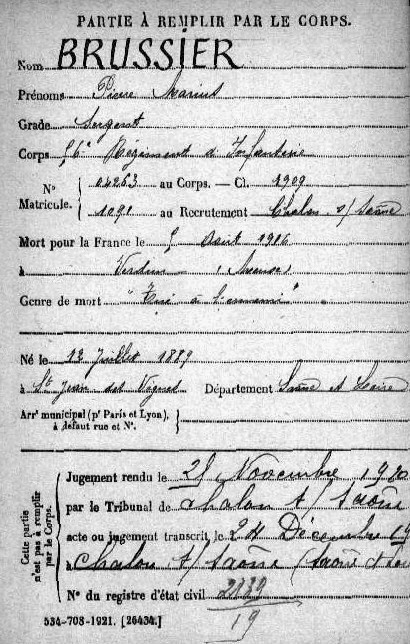 PARTIE À REMPLIR PAR LE CORPS.
Nom BRUSSIER
Prénoms Pierre Marius
Grade Sergent
Corps 56e Régiment d'Infanterie
N° Matricule. { 04253 au Corps. — Cl. 1909
1091 au Recrutement Chalon s/ Saône
Mort pour la France le 5 Août 1916
à Verdun (Meuse)
Genre de mort "Tué à l'ennemi"
Né le 12 Juillet 1889
à St Jean des Vignes Département Saône et Loire
Arr' municipal (p' Paris et Lyon), à défaut rue et N°.
Cette partie n'est pas à remplir par le Corps.
Jugement rendu le 25 Novembre 1920
par le Tribunal de Chalon s/ Saône
acte ou jugement transcrit le 24 Décembre
à Chalon s/ Saône (Saône et Loi
N° du registre d'état civil
19
534-708-1921. [26434.]